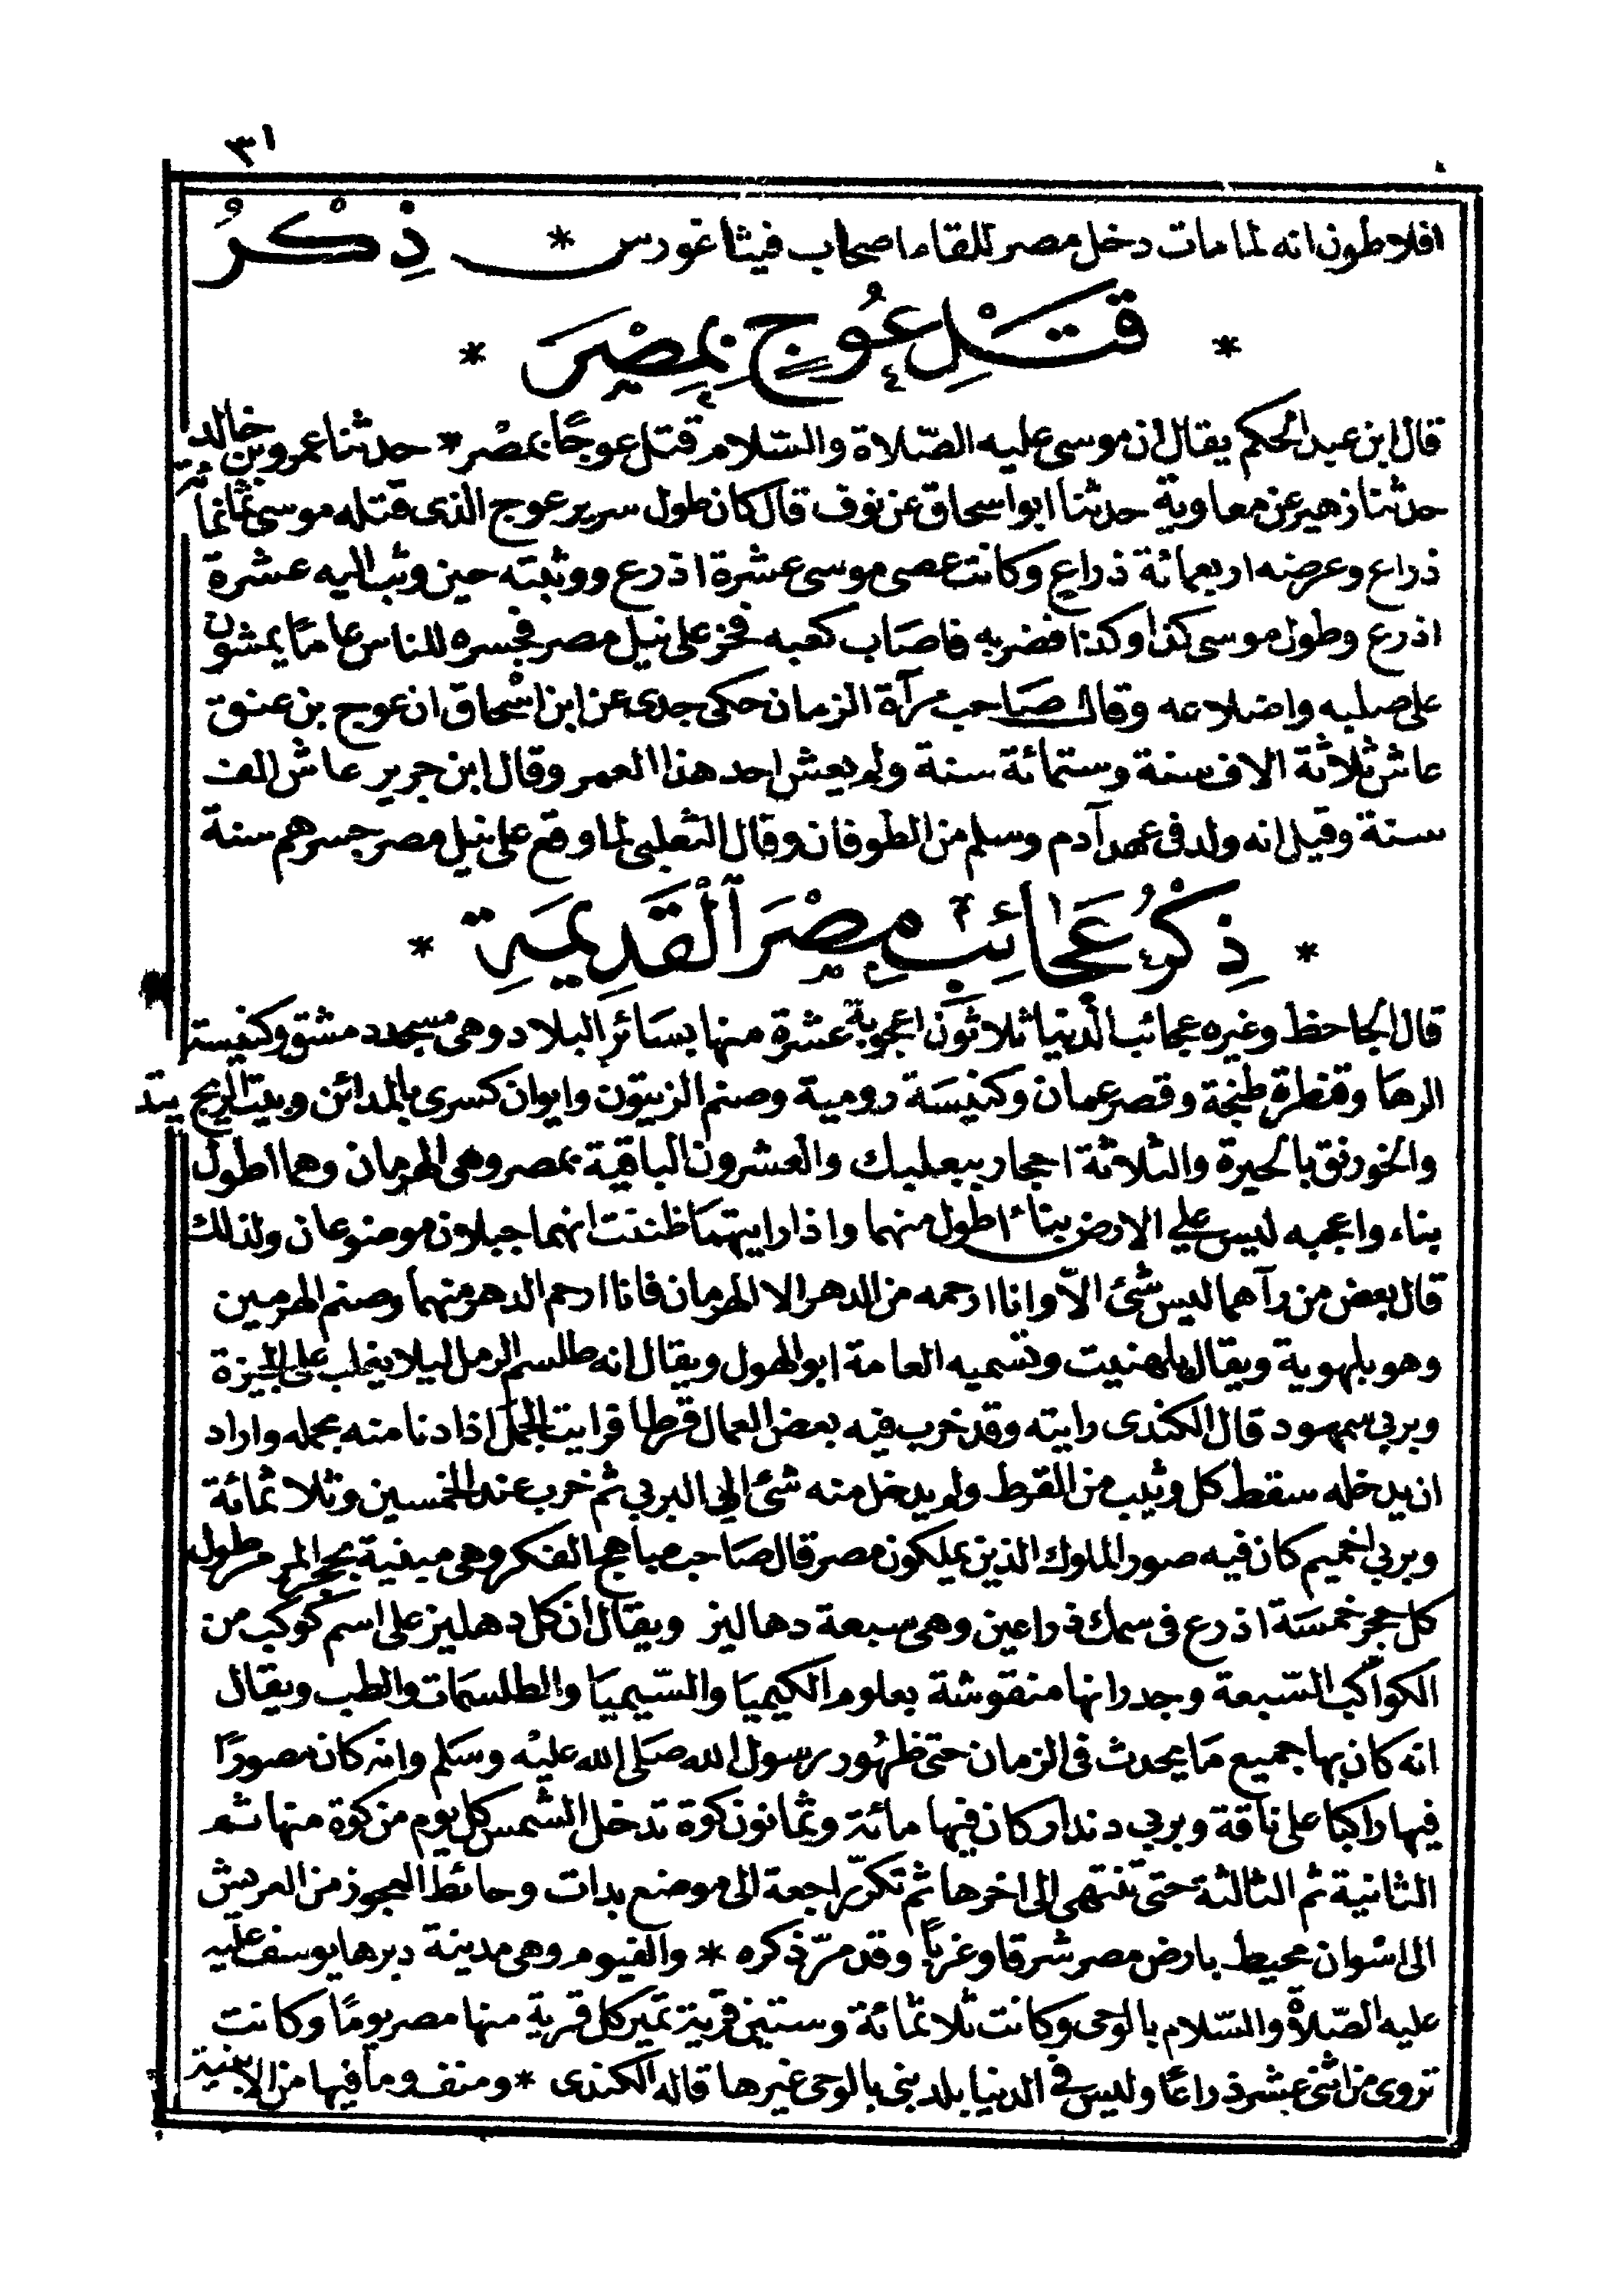 ٣١
افلاطون انه لما مات دخل مصر للقاء اصحاب فيثاغورس * ذِكْرُ
* قَتْلِ عُوجٍ بِمِصْرَ *
قال ابن عبد الحكم يقال ان موسى عليه الصّلاة والسّلام قتل عوجًا بمصْر * حدثنا عمرو بن خالد
حدثنا زهير عن معاوية حدثنا ابو اسحاق عن نوف قال كان طول سرير عوج الذى قتله موسى ثمانمائة
ذراع وعرضه اربعمائة ذراع وكانت عصى موسى عشرة اذرع ووثبته حين وثب اليه عشرة
اذرع وطول موسى كذا وكذا فضربه فاصَاب كعبه فخر على نيل مصر فجسره للناس عامًا يمشون
على صلبه واضلاعه وقال صَاحب مرآة الزمان حكى جدى عن ابن اسْحاق ان عوج بن عنق
عاش ثلاثة الاف سنة وستمائة سنة ولم يعش احد هذا العمر وقال ابن جرير عاش الف
سنة وقيل انه ولد فى عهد آدم وسلم من الطوفان وقال الثعلبى لما وقع على نيل مصر جسرهم سنة
* ذِكْرُ عَجَائِبِ مِصْرَ ٱلْقَدِيمَةِ *
قال الجاحظ وغيره عجائب الدنيا ثلاثون اعجوبة عشرة منها بسَائر البلاد وهى مسجد دمشق وكنيسة
الرهَا وقنطرة طنجة وقصر عمان وكنيسَة رومية وصنم الزيتون وايوان كسرى بالمدائن وبيت الريح بتد
والخورنق بالحيرة والثلاثة احجار ببعلبك والعشرون الباقية بمصر وهى الهرمان وهما اطول
بناء واعجبه ليس على الارض بناء اطول منهما واذا رايتهمَا ظننت انهما جبلان موضوعان ولذلك
قال بعض من رآهما ليس شئ الّا وانا ارحمه من الدهر الا الهرمان فانا ارحم الدهر منهما وصنم الهرمين
وهو بلهوية ويقال بلهنيت وتسميه العامة ابو الهول ويقال انه طلسم الرمل ليلا يغلب على الجيزة
وبربى سمهود قال الكندى رايته وقد خرب فيه بعض العمال قرطا فرايت الجمل اذا دنا منه بحمله واراد
ان يدخله سقط كل وثيب من القرط ولم يدخل منه شئ الى البربى ثم خرب عند الخمسين وثلاثمائة
وبربى اخميم كان فيه صور الملوك الذين يملكون مصر قال صَاحب مباهج الفكر وهى مبنية بحجر المرمر طول
كل حجر خمسَة اذرع فى سمك ذراعين وهى سبعة دهاليز ويقال ان كل دهليز على اسم كوكب من
الكواكب السّبعة وجدرانها منقوشة بعلوم الكيميَا والسّيميَا والطلسمَات والطب ويقال
انه كان بها جميع مَا يحدث فى الزمان حتى ظهُور رسول الله صَلى الله عليْه وسَلم وانه كان مصورًا
فيها راكبًا على ناقة وبربى دندار كان فيها مائة وثمانون كوة تدخل الشمس كل يوم من كوة منها ثم
الثانية ثم الثالثة حتى تنتهى الى اخرها ثم تكرّ راجعة الى موضع بدات وحائط العجوز من العريش
الى اسْوان محيط بارض مصر شرقا وغربًا وقد مرّ ذكره * والفيوم وهى مدينة دبرها يوسف عليه
عليه الصّلاة والسّلام بالوحى وكانت ثلاثمائة وستين قرية تمير كل قرية منها مصر يومًا وكانت
تروى من اثنى عشر ذراعًا وليس فى الدنيا بلد بنى بالوحى غيرها قاله الكندى * ومنف وما فيها من الابنية